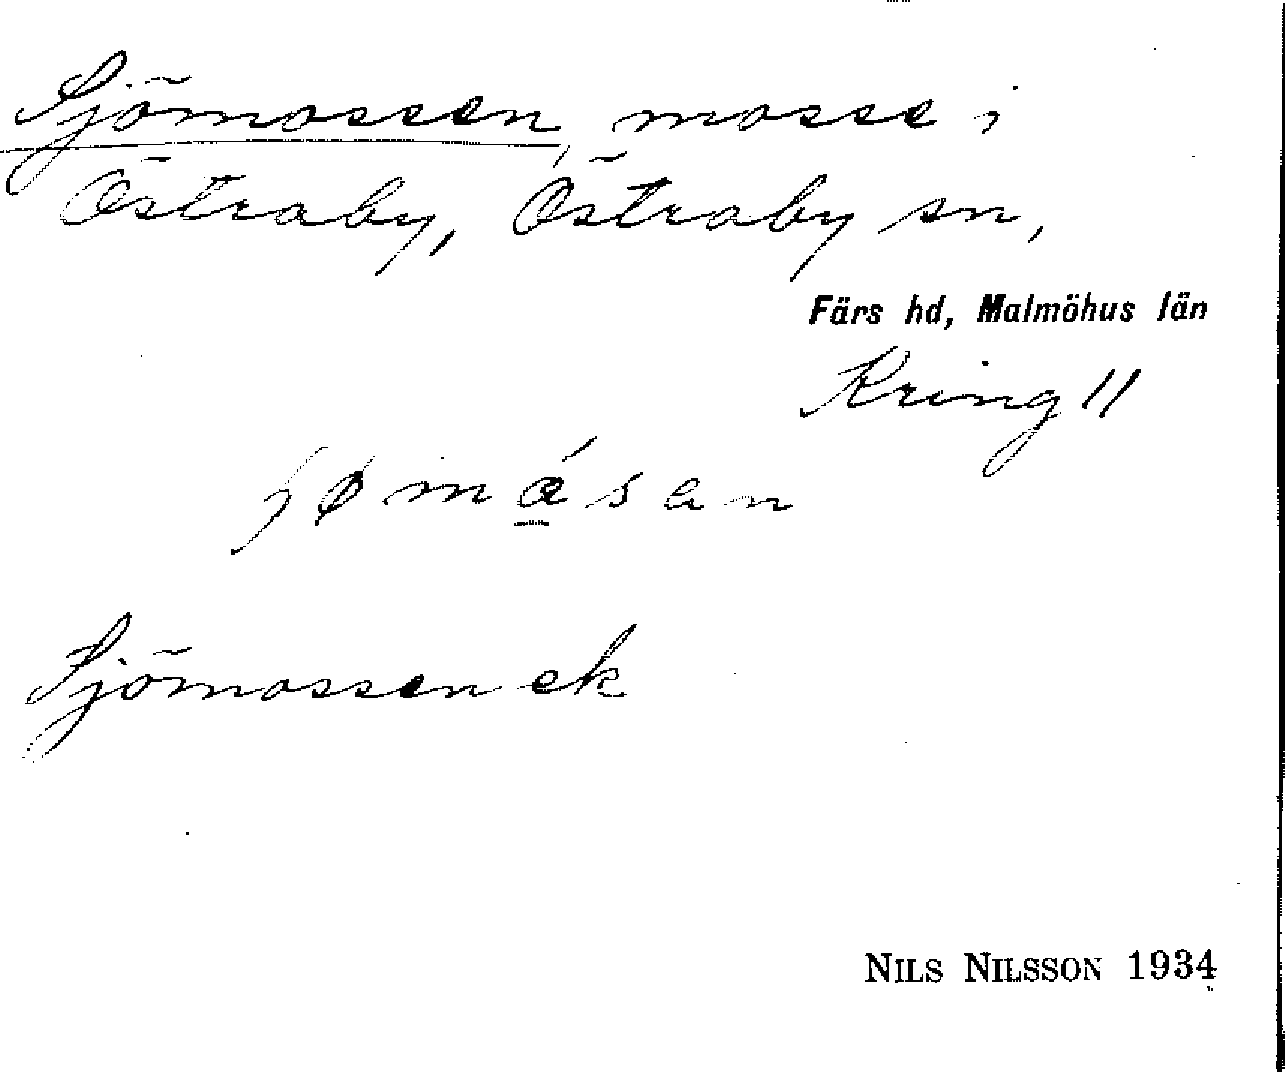 Sjömossen, mosse i
Östraby, Östraby sn,
Färs hd, Malmöhus län
Kring 11
ʃømåsan
Sjömossen ek
NILS NILSSON 1934